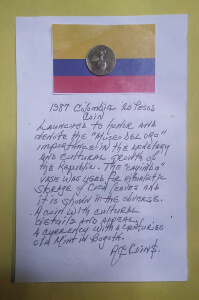 1987 Colombia 20 Pesos
Coin
Launched to honor and
denote the "Museo del Oro"
importance in the monetary
and cultural growth of
the Republic. The "
vase was used for ritualistic
storage of Coca leaves and
it is shown in the obverse.
A coin with cultural
details and appeal.
A currency with a centuries
old Mint in Bogotá.